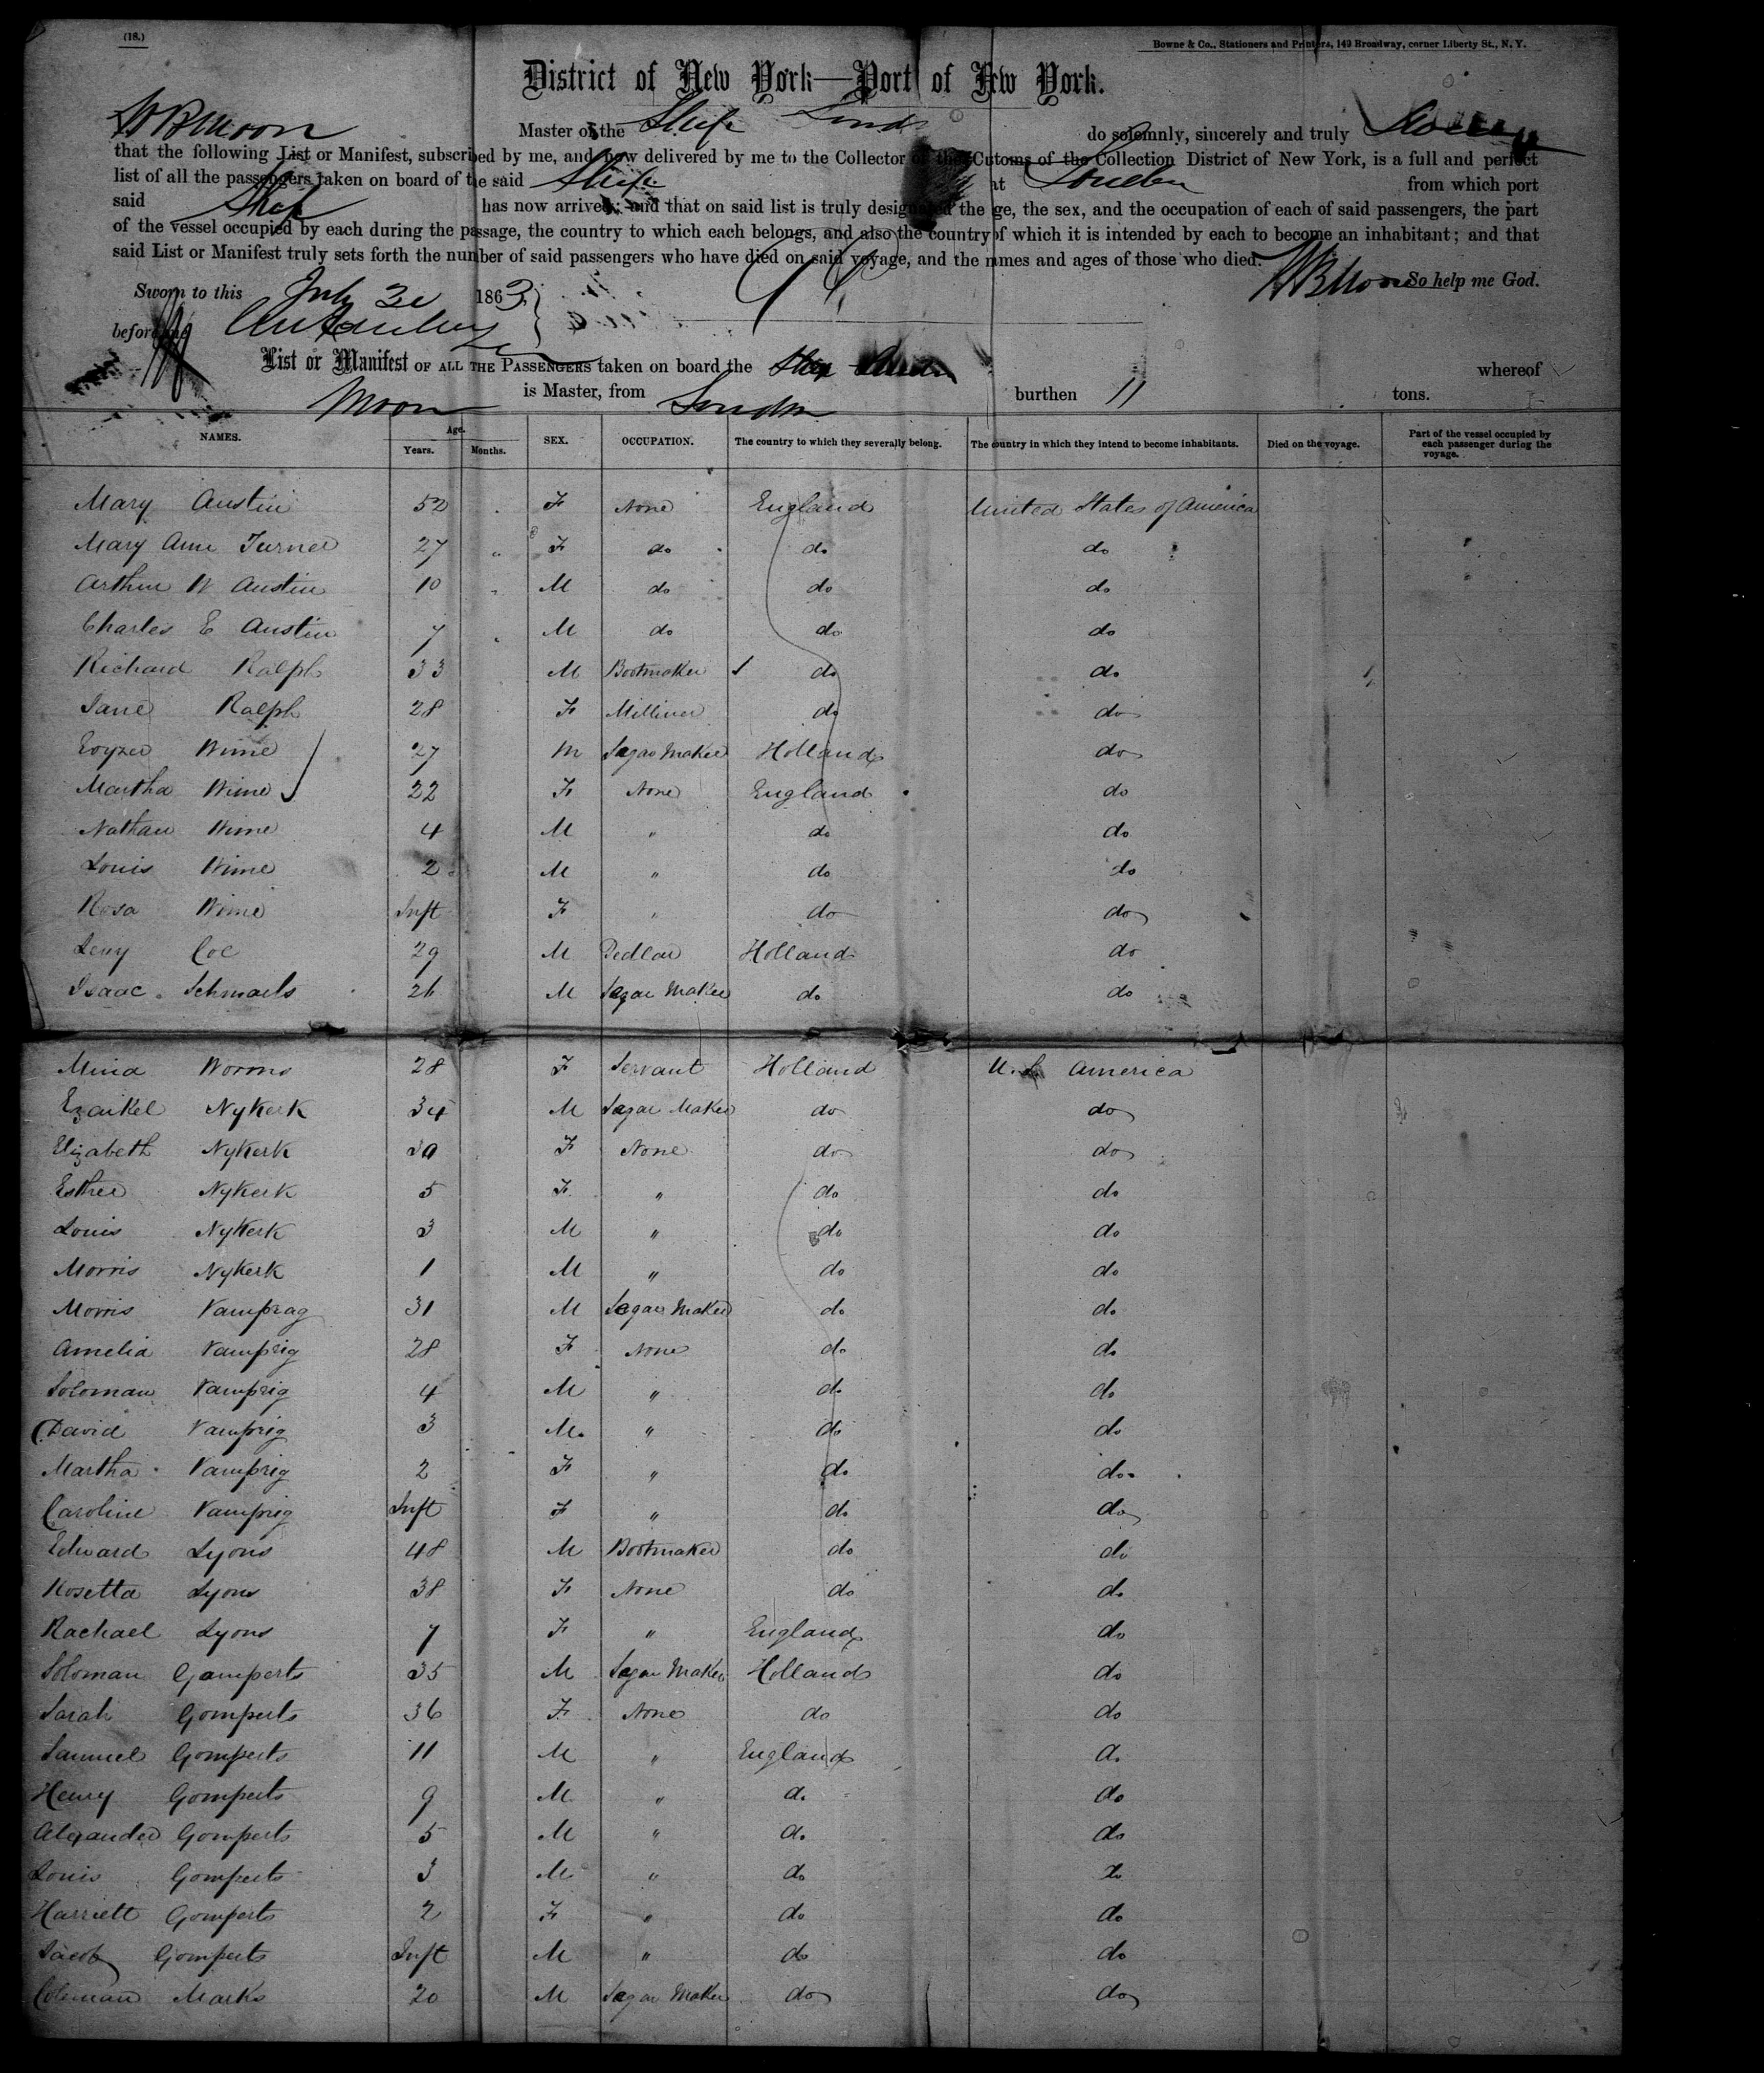 (18.)
Bowne & Co., Stationers and Printers, 149 Broadway, corner Liberty St., N. Y.
District of New York—Port of New York.
W B Moon Master of the Ship do solemnly, sincerely and truly
that the following List or Manifest, subscribed by me, and now delivered by me to the Collector of the Cutoms of the Collection District of New York, is a full and perfect
list of all the passengers taken on board of the said Ship at London from which port
said Ship has now arrived; and that on said list is truly designated the age, the sex, and the occupation of each of said passengers, the part
of the vessel occupied by each during the passage, the country to which each belongs, and also the country of which it is intended by each to become an inhabitant; and that
said List or Manifest truly sets forth the number of said passengers who have died on said voyage, and the names and ages of those who died.
W B Moon So help me God.
Sworn to this July 1863
before me
List or Manifest OF ALL THE PASSENGERS taken on board the Ship whereof
Moon is Master, from London burthen 11 tons.
NAMES. Age. Years. Months. SEX. OCCUPATION. The country to which they severally belong. The country in which they intend to become inhabitants. Died on the voyage. Part of the vessel occupied by each passenger during the voyage.
Mary Austin 52 F None England United States of America
Mary Ann Turner 27 " F do do do
Arthur W Austin 10 " M do do do
Charles E Austin 7 " M do do do
Richard Ralph 33 M Bootmaker do do
Jane Ralph 28 F Milliner do do
Wime 27 M Segar Maker Holland do
Martha Wime 22 F None England do
Nathan Wime 4 M " do do
Louis Wime 2 M " do do
Rosa Wime Inft F " do do
Levy Coe 29 M Pedlar Holland do
Isaac Schmaels 26 M Segar Maker do do
Mina Worms 28 F Servant Holland U. S. America
Ezaikel Nykerk 34 M Segar Maker do do
Elizabeth Nykerk 30 F None do do
Esther Nykerk 5 F " do do
Louis Nykerk 3 M " do do
Morris Nykerk 1 M " do do
Morris Vamprag 31 M Segar Maker do do
Amelia Vamprig 28 F None do do
Soloman Vamprig 4 M " do do
David Vamprig 3 M " do do
Martha Vamprig 2 F " do do
Caroline Vamprig Inft F " do do
Edward Lyons 48 M Bootmaker do do
Rosetta Lyons 38 F None do do
Rachael Lyons 7 F " England do
Soloman Gamperts 35 M Segar Maker Holland do
Sarah Gomperts 36 F None do do
Samuel Gomperts 11 M " England do
Henry Gomperts 9 M " do do
Alexander Gomperts 5 M " do do
Louis Gomperts 3 M " do do
Harriett Gomperts 2 F " do do
Jacob Gomperts Inft M " do do
Coleman Marks 20 M Segar Maker do do